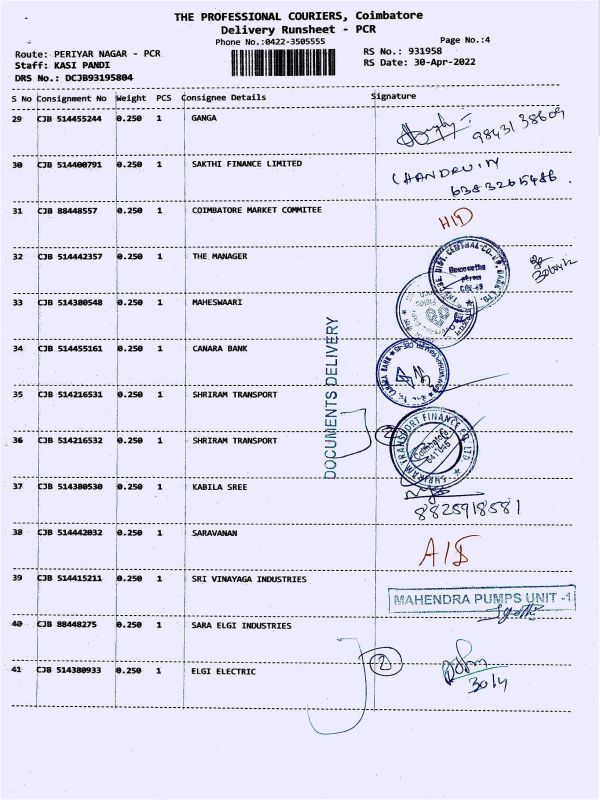 THE PROFESSIONAL COURIERS, Coimbatore
Delivery Runsheet - PCR
Phone No.:0422-3505555
Page No.:4
Route: PERIYAR NAGAR - PCR
RS No.: 931958
Staff: KASI PANDI
RS Date: 30-Apr-2022
DRS No.: DCJB93195804
S No Consignment No Weight PCS Consignee Details Signature
29 CJB 514455244 0.250 1 GANGA
9843138609
30 CJB 514400791 0.250 1 SAKTHI FINANCE LIMITED CHANDRU.N
6383265486.
31 CJB 88448557 0.250 1 COIMBATORE MARKET COMMITEE H/D
32 CJB 514442357 0.250 1 THE MANAGER
33 CJB 514380548 0.250 1 MAHESWAARI
DOCUMENTS DELIVERY
34 CJB 514455161 0.250 1 CANARA BANK
CANARA BANK
35 CJB 514216531 0.250 1 SHRIRAM TRANSPORT
36 CJB 514216532 0.250 1 SHRIRAM TRANSPORT 2
SHRIRAM TRANSPORT FINANCE CO. LTD
Coimbatore
641 045
37 CJB 514380530 0.250 1 KABILA SREE
8825918581
38 CJB 514442032 0.250 1 SARAVANAN A/S
39 CJB 514415211 0.250 1 SRI VINAYAGA INDUSTRIES
MAHENDRA PUMPS UNIT -1
40 CJB 88448275 0.250 1 SARA ELGI INDUSTRIES
41 CJB 514380933 0.250 1 ELGI ELECTRIC 2
30/4